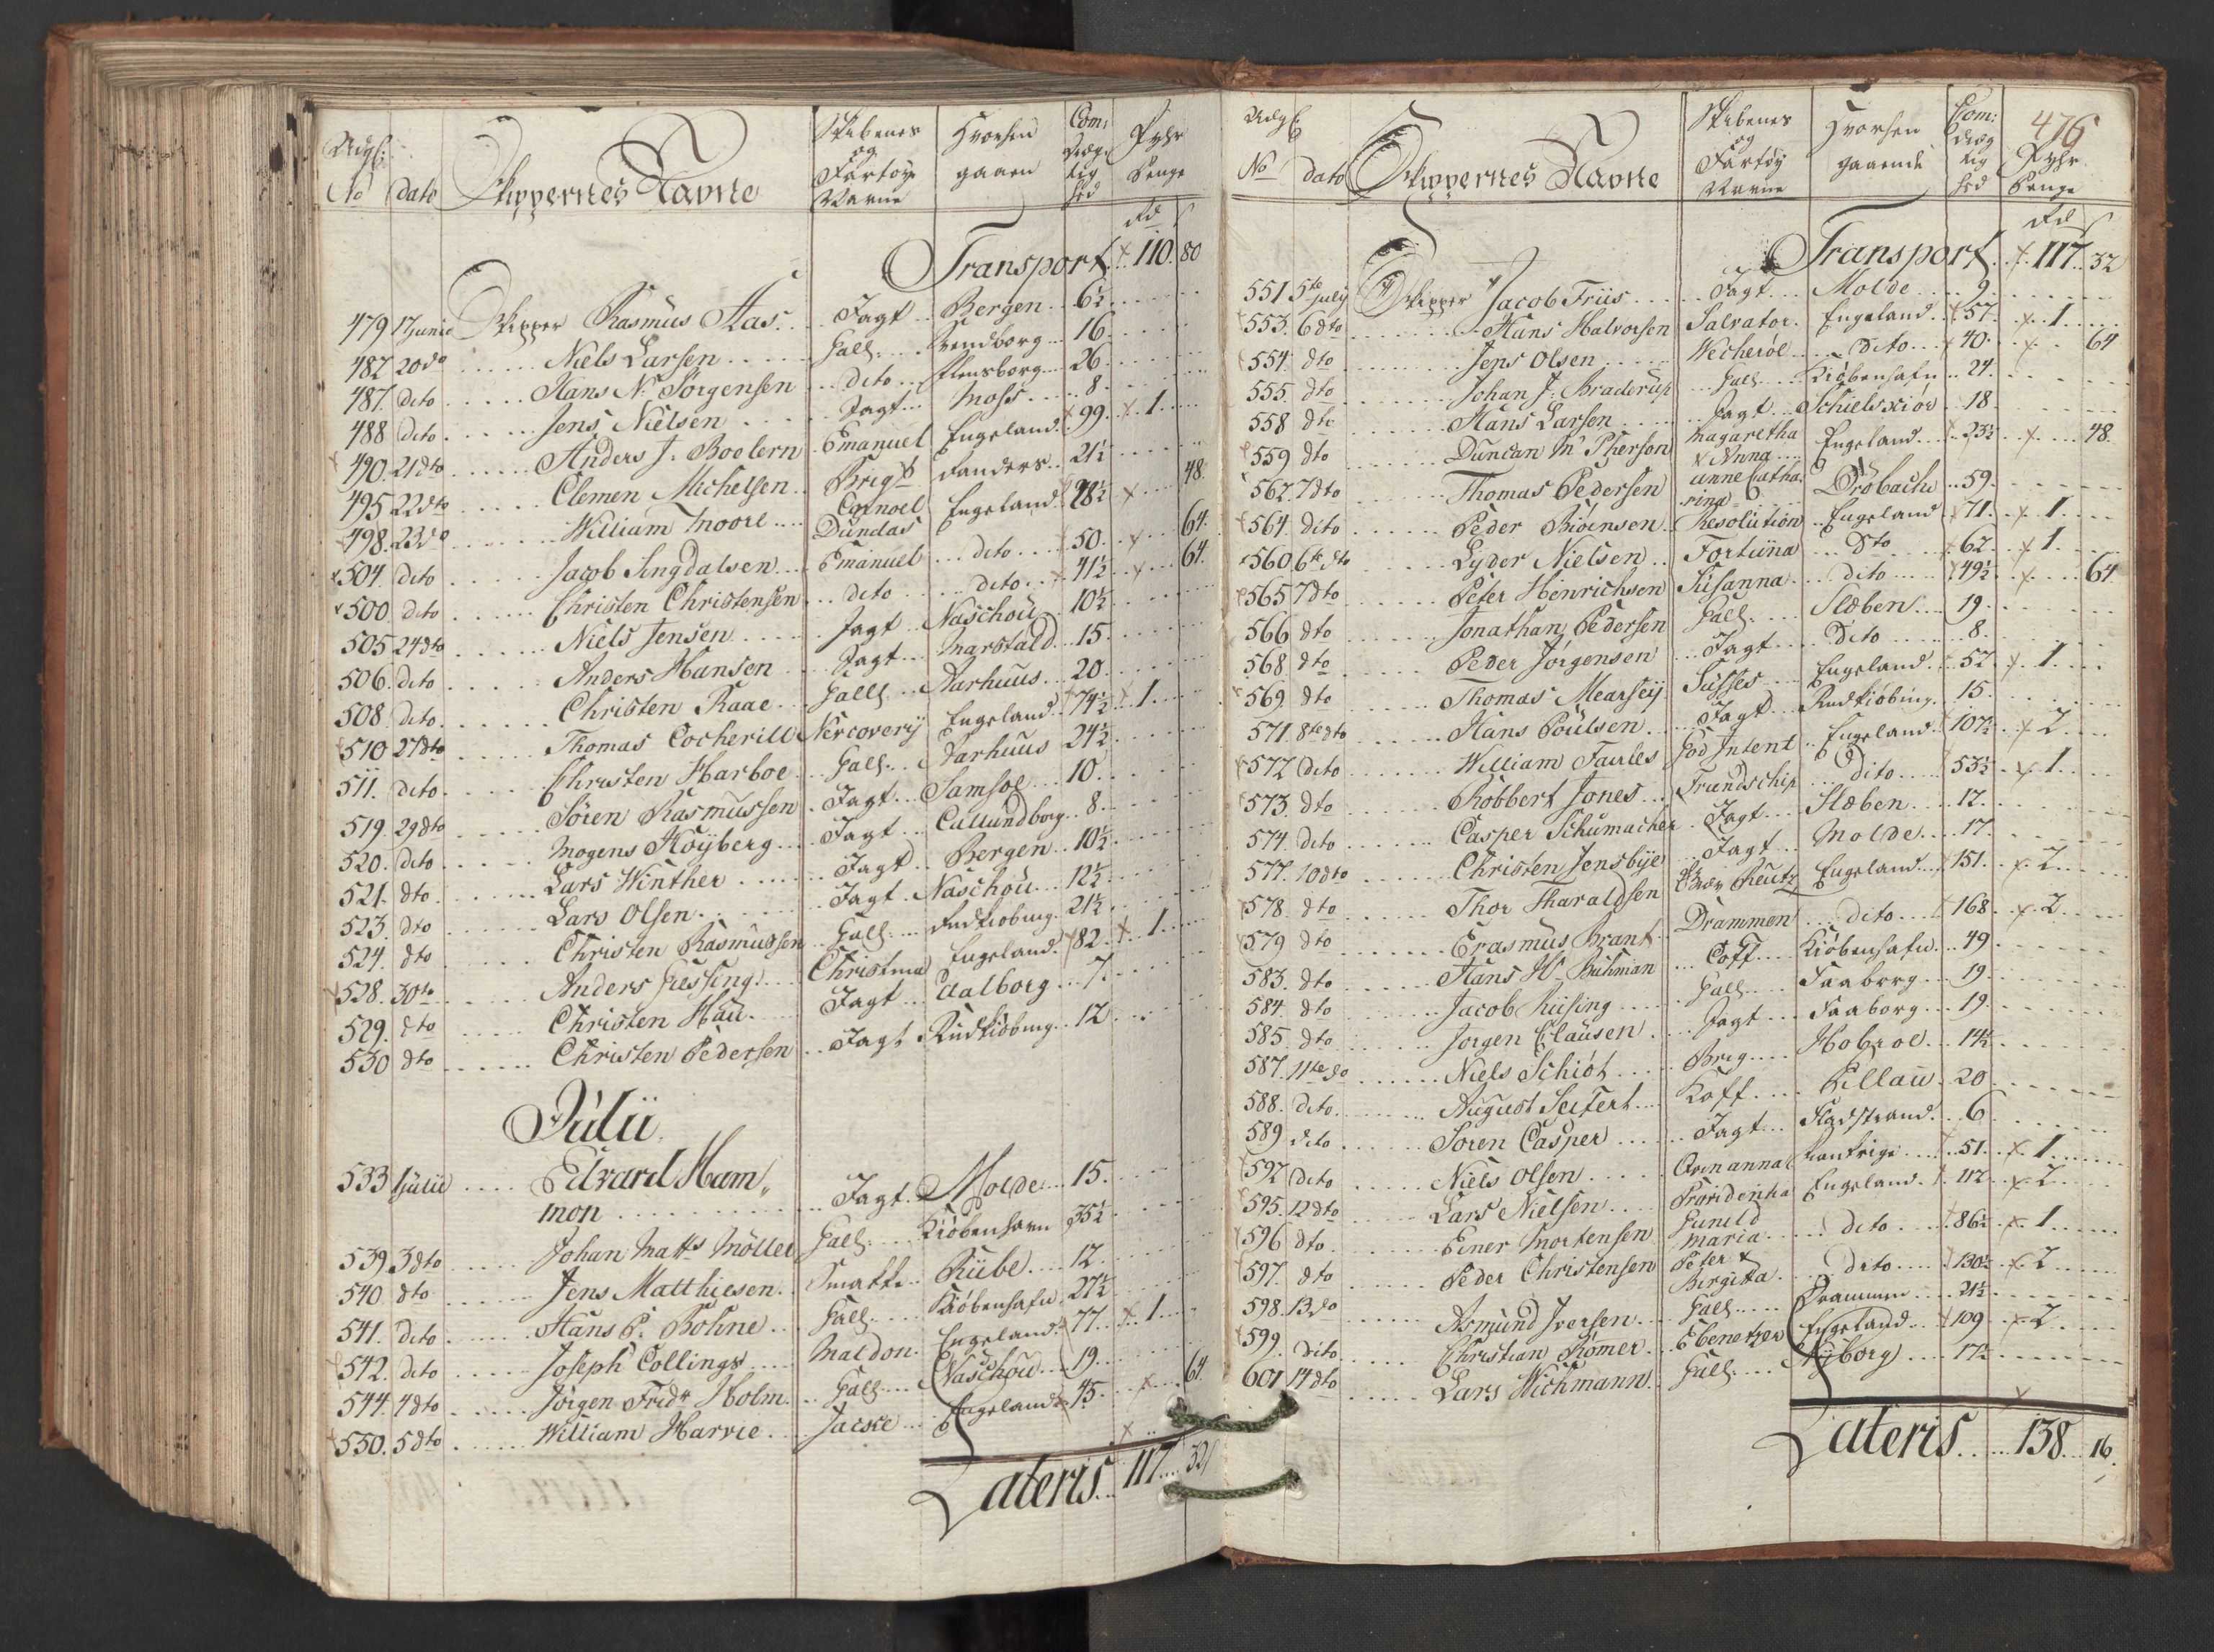 Udg:
No dato Skippernes Navne Skibenes og Fartøyers Navne Hvorhen gaaen Com: Dræg tig hed Fyhr Penge
Rd ß
Transport 110. 80
479 17 Junii Skipper Rasmus Aas Jagt Bergen 6½
482 20do Niels Larsen Gall: Svendborg 16
487 dito Hans N. Jørgensen dito Flensborg 26
488 dito Jens Nielsen Jagt Moss 8
490. 21dto Anders J: Boolern Emanuel Engeland 99. 1
495 22dto Clemen Michelsen Brigt Randers 21½
498. 23do William Moore Coronel Dundas Engeland 28½ 48
504. dito Jacob Singdalsen Emanuel dito 50. 64.
500 dito Christen Christensen dito dito 41½ 64
505 24dto Niels Jensen Jagt Naschou 10½
506. dito Anders Hansen Jagt Marstald 15.
508. dito Christen Raae Galls Aarhuus 20.
510 27dto Thomas Cocherill Nercovery Engeland 74½ 1
511. dito Christen Harboe Gall: Aarhuus 24½
519. 29dto Sören Rasmussen Jagt Samsoe 10.
520. dito Mogens Høyberg Jagt Callundborg 8.
521. dto Lars Winther Jagt Bergen 10½
523. dto Lars Olsen Jagt Naschou 12½
524. dto Christen Rasmussen Gall: Rudkiøbing 21½
528. 30te Anders Giessing Christina Engeland 82. 1
529. dto Christen Hau Jagt Aalborg 7.
530 dto Christen Pedersen Jagt Rudkiøbing 12
Julii
533 1 Julii Edvard Ham„
mon Jagt Molde 15.
539 3dto Johan Matts Möller Gall: Kiöbenhavn 35½
540 dto Jens Matthiesen Smakke Riibe 12.
541. dito Hans P. Bohne Gall: Kiöbenhafn 27½
542. dito Joseph Collings Maldon Engeland 77 1
544. 4dto Jörgen Fridr Holm Gall: Naschou 19
550. 5dto William Harvie Jacske Engeland 45. 64.
Lateris 117 32
476
Udg:
No dato Skippernes Navne Skibenes og Fartøy Navne Hvorhen gaaende Com: Dræg tig hed Fyhr Penge
Rd ß
Transport 117. 32
551 5te July Skipper Jacob Friis Jagt Molde 9
553. 6dto Hans Halvorsen Salvator Engeland 57. 1
554. dto Jens Olsen Wecheröe dito 40. 64
555. dto Johan J: Braderup Gall: Kiöbenhafn 24.
558 dto Hans Larsen Jagt Schielsskiör 18
559 dto Duncan Mc Pherson Magaretha & Anna Engeland 23½ 48
562. 7dto Thomas Pedersen Anne Catha rina Dröbach 59.
564. dito Peder Biörnsen Resolution Engeland 71. 1
560 6te dto Lyder Nielsen Fortuna Dto 62. 1
565 7dto Peter Hinrichsen Susanna dito 49½ 64
566 dto Jonathan Pedersen Gall: Slæben 19.
568. dto Peder Jørgensen Jagt Dito 8.
569. dto Thomas Mearsey Susses Engeland 52. 1
571. 8te dto Hans Poulsen Jagt Rudkiöbing 15.
572 dito William Fairles God Intent Engeland 107½ 2
573. dto Robbert Jones Friendschip dito 53½ 1
574. dito Casper Schumacher Jagt Slæben 12.
577. 10dto Christen Jensbye Jagt Molde 17.
578. dto Thor Tharaldsen Reutz Engeland 151. 2
579 dto Erasmus Brant Drammen dito 168. 2
583. dto Hans W. Buhman Coff Kiöbenhafn 49
584. dto Jacob Riising Gall: Faaborg 19.
585. dto Jorgen Clausen Jagt Faaborg 19.
587. 11te do Niels Schiöt Brig Hobroe 14½
588. dito August Seifert Koff Pillau 20
589 dito Soren Casper Jagt Fladstrand 6
592 dito Niels Olsen Anna Frankrige 51. 1
595. 12dto Lars Nielsen Providentia Engeland 112 2
596 dto Einer Mortensen Gunild Maria dito 86½ 1
597. dto Peder Christensen Peter & Birgitta dito 130½ 2
598. 13do Asmund Iversen Gall: Drammen 21½
599. dito Christian Römer Ebenetzer Engeland 109 2
601 14dto Lars Wichmann Gall: Nyborg 17½
Lateris 138. 16.